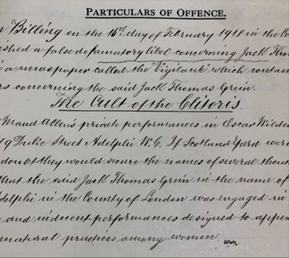 PARTICULARS OF OFFENCE.
Billing on the 16th day of February 1918 in the Co
shed a false defamatory libel concerning Jack Thom
a newspaper called the "Vigilante" which contain
s concerning the said Jack Thomas Grein.
The Cult of the Clitoris.
Maud Allan's private performances in Oscar Wilde
9 Duke Street, Adelphi W.C. If Scotland Yard were
doubt they would secure the names of several thous
that the said Jack Thomas Grein in the name of
delphi in the County of London was engaged in
and indecent performances designed to appea
unnatural practices among women.